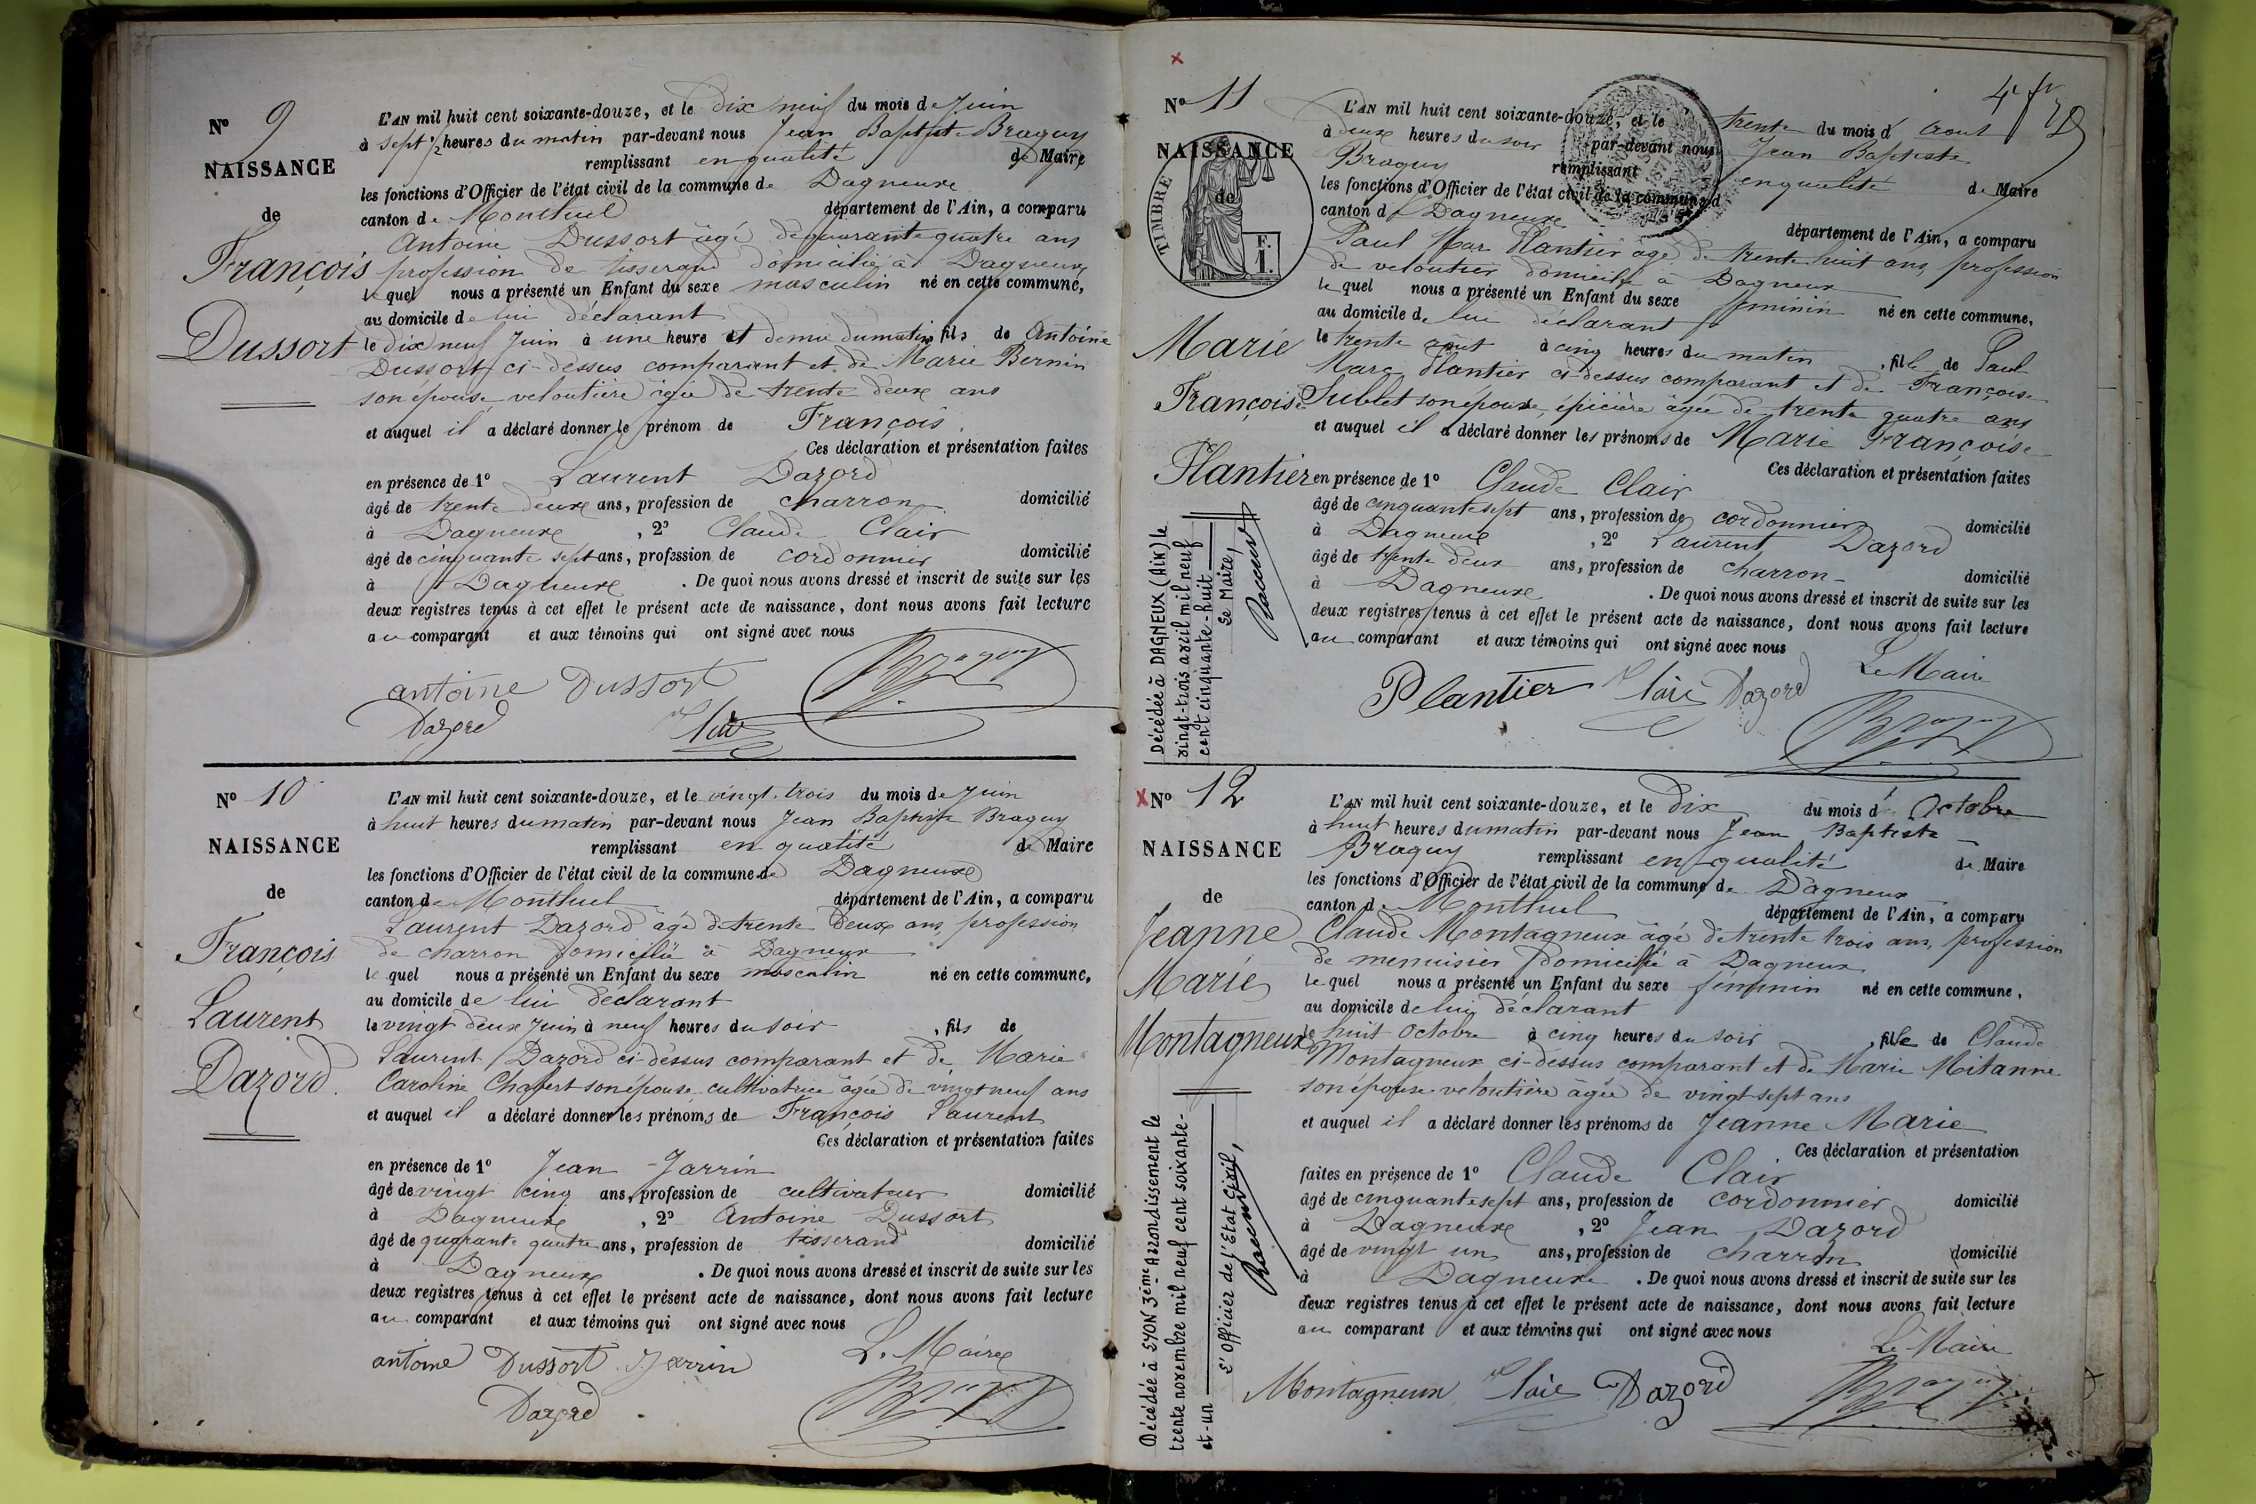 N° 9
NAISSANCE
de
François
Dussort
L'AN mil huit cent soixante-douze, et le dix neuf du mois de Juin
à sept ½ heures du matin par-devant nous Jean Baptiste Braguy
remplissant en qualité de Maire
les fonctions d'Officier de l'état civil de la commune de Dagneux
canton de Montluel département de l'Ain, a comparu
Antoine Dussort âgé de quarante quatre ans
profession de tisserand domicilié à Dagneux
lequel nous a présenté un Enfant du sexe masculin né en cette commune,
au domicile de lui déclarant
le dix neuf Juin à une heure et demie du matin, fils de Antoine
Dussort ci-dessus comparant et de Marie Bernin
son épouse veloutière âgée de trente deux ans
et auquel il a déclaré donner le prénom de François.
Ces déclaration et présentation faites
en présence de 1° Laurent Dazord
âgé de trente deux ans, profession de charron domicilié
à Dagneux, 2° Claude Clair
âgé de cinquante sept ans, profession de cordonnier domicilié
à Dagneux. De quoi nous avons dressé et inscrit de suite sur les
deux registres tenus à cet effet le présent acte de naissance, dont nous avons fait lecture
au comparant et aux témoins qui ont signé avec nous
antoine Dussort Braguy
Dazord Clair
N° 10
NAISSANCE
de
François
Laurent
Dazord.
L'AN mil huit cent soixante-douze, et le vingt-trois du mois de Juin
à huit heures du matin par-devant nous Jean Baptiste Braguy
remplissant en qualité de Maire
les fonctions d'Officier de l'état civil de la commune de Dagneux
canton de Montluel département de l'Ain, a comparu
Laurent Dazord âgé de trente deux ans, profession
de charron domicilié à Dagneux
lequel nous a présenté un Enfant du sexe masculin né en cette commune,
au domicile de lui déclarant
le vingt deux Juin à neuf heures du soir, fils de
Laurent Dazord ci-dessus comparant et de Marie
Caroline Chabert son épouse cultivatrice âgée de vingt neuf ans
et auquel il a déclaré donner les prénoms de François Laurent
Ces déclaration et présentation faites
en présence de 1° Jean Jarrin
âgé de vingt cinq ans, profession de cultivateur domicilié
à Dagneux, 2° Antoine Dussort
âgé de quarante quatre ans, profession de tisserand domicilié
à Dagneux. De quoi nous avons dressé et inscrit de suite sur les
deux registres tenus à cet effet le présent acte de naissance, dont nous avons fait lecture
au comparant et aux témoins qui ont signé avec nous
Le Maire
antoine Dussort J. Jarrin
Dazord Braguy
N° 11
NAISSANCE
de
TIMBRE
F.
1.
Marie
Françoise
Plantier
Décédée à DAGNEUX (Ain) le
vingt-trois avril mil neuf
cent cinquante-huit
Le Maire,
L'AN mil huit cent soixante-douze, et le trente du mois d'Aout
à deux heures du soir par-devant nous Jean Baptiste
Braguy remplissant en qualité de Maire
les fonctions d'Officier de l'état civil de la commune d
canton d Dagneux département de l'Ain, a comparu
Paul Marc Plantier âgé de trente huit ans, profession
de veloutier domicilié à Dagneux
lequel nous a présenté un Enfant du sexe féminin né en cette commune,
au domicile de lui déclarant
le trente août à cinq heures du matin, fille de Paul
Marc Plantier ci-dessus comparant et de Françoise
Sublet son épouse, épicière âgée de trente quatre ans
et auquel il a déclaré donner les prénoms de Marie Françoise
Ces déclaration et présentation faites
en présence de 1° Claude Clair
âgé de cinquante sept ans, profession de cordonnier domicilié
à Dagneux, 2° Laurent Dazord
âgé de trente deux ans, profession de charron domicilié
à Dagneux. De quoi nous avons dressé et inscrit de suite sur les
deux registres tenus à cet effet le présent acte de naissance, dont nous avons fait lecture
au comparant et aux témoins qui ont signé avec nous
Le Maire
Plantier Clair Dazord
Braguy
N° 12
NAISSANCE
de
Jeanne
Marie
Montagneux
Décédée à LYON 3ème Arrondissement le
trente novembre mil neuf cent soixante-
et-un
L'Officier de l'Etat Civil,
L'AN mil huit cent soixante-douze, et le dix du mois d'Octobre
à huit heures du matin par-devant nous Jean Baptiste
Braguy remplissant en qualité de Maire
les fonctions d'Officier de l'état civil de la commune de Dagneux
canton de Montluel département de l'Ain, a comparu
Claude Montagneux âgé de trente trois ans, profession
de menuisier domicilié à Dagneux
lequel nous a présenté un Enfant du sexe féminin né en cette commune,
au domicile de lui déclarant
le huit Octobre à cinq heures du soir, fille de Claude
Montagneux ci-dessus comparant et de Marie Mitanne
son épouse veloutière âgée de vingt sept ans
et auquel il a déclaré donner les prénoms de Jeanne Marie
Ces déclaration et présentation
faites en présence de 1° Claude Clair
âgé de cinquante sept ans, profession de cordonnier domicilié
à Dagneux, 2° Jean Dazord
âgé de vingt un ans, profession de charron domicilié
à Dagneux. De quoi nous avons dressé et inscrit de suite sur les
deux registres tenus à cet effet le présent acte de naissance, dont nous avons fait lecture
au comparant et aux témoins qui ont signé avec nous
Le Maire
Montagneux Clair Dazord Braguy